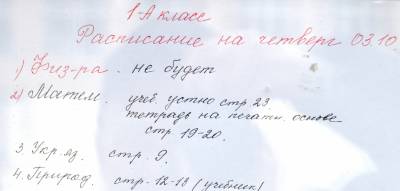 1-А класс
Расписание на четверг 03.10.
1) Физ-ра. не будет
2) Матем. учеб. устно стр 23
тетрадь на печатн. основе
стр. 19-20.
3. Укр. яз. стр. 9.
4. Природ. стр. 12-13 (учебник)